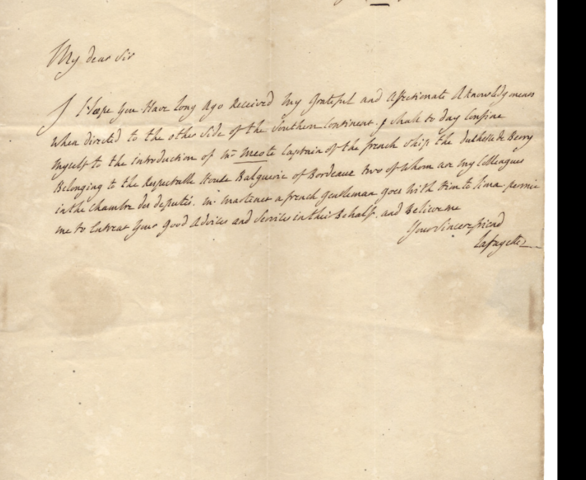 My dear Sir
I Hope You Have long Ago Received My Grateful and Affectionate Aknowledgments
When directed to the other Side of the Southern Continent. I Shall to day Confine
Myself to the introduction of Captain of the french Ship the dutchess de Berry
Belonging to the Respectable House Balguerie of Bordeaux two of Whom are my Colleagues
in the Chambre des deputés. Mr a french gentleman goes With Him to Lima. permit
me to Entreat Your Good Advices and Services in this Behalf, and Believe me
Your Sincere friend
Lafayette